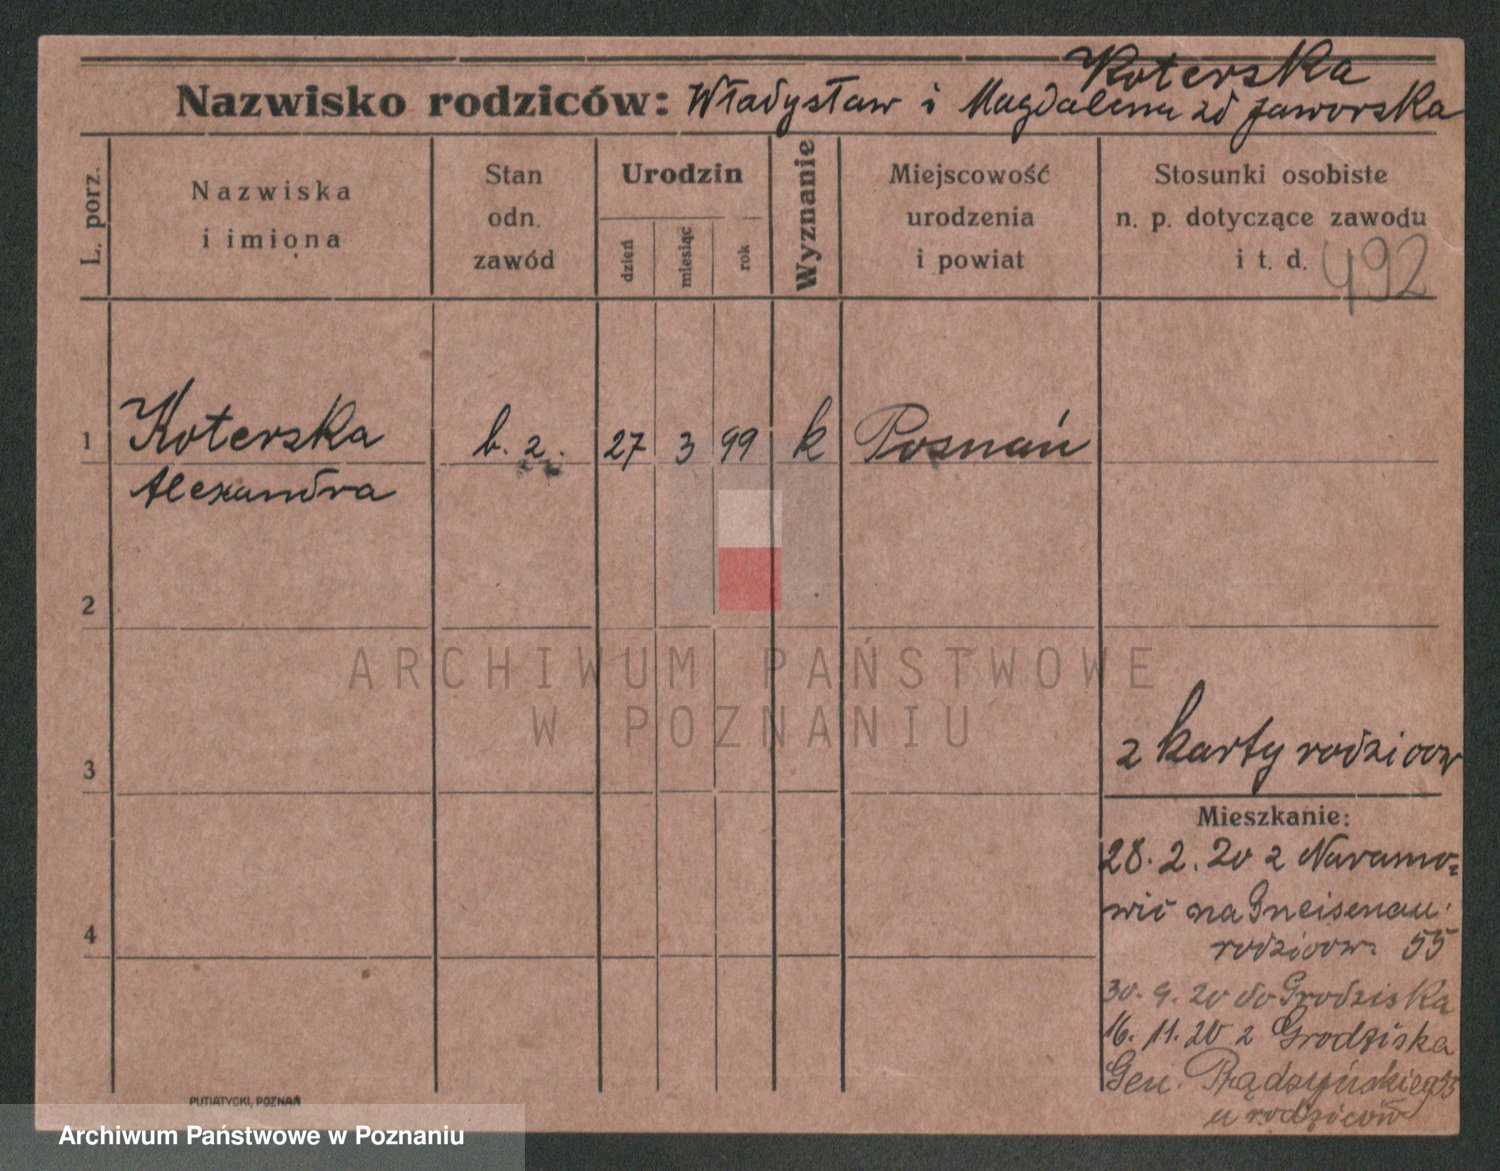 Koterska
Nazwisko rodziców: Władysław i Magdalena zd Jaworska
L. porz.
Nazwiska
i imiona
Stan
odn.
zawód
Urodzin
dzień
miesiąc
rok
Wyznanie
Miejscowość
urodzenia
i powiat
Stosunki osobiste
n. p. dotyczące zawodu
i t. d.
492
1 Koterska b. z. 27 3 99 k Poznań
Alexandra
2
ARCHIWUM PAŃSTWOWE
W POZNANIU
3
z karty rodziców
Mieszkanie:
28. 2. 20 z Naramo=
wic na Gneisenau.
4
rodziców. 55
30. 9. 20 do Grodziska
16. 11. 20 z Grodziska
Gen. Prądzyńskiego 55
u rodziców
PUTIATYCKI, POZNAŃ
Archiwum Państwowe w Poznaniu